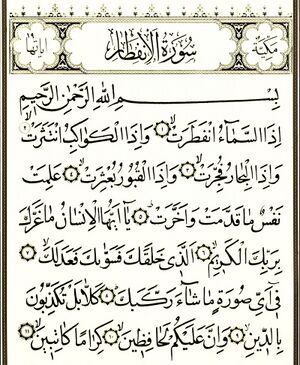 اياتها ١٩ سُورَةُ الْاِنْفِطَارِ مَكِّيَّة
بِسْمِ اللهِ الرَّحْمٰنِ الرَّحٖيمِ
اِذَا السَّمَٓاءُ انْفَطَرَتْۙ ﴿١﴾ وَاِذَا الْكَوَاكِبُ انْتَثَرَتْۙ ﴿٢﴾
وَاِذَا الْبِحَارُ فُجِّرَتْۙ ﴿٣﴾ وَاِذَا الْقُبُورُ بُعْثِرَتْۙ ﴿٤﴾ عَلِمَتْ
نَفْسٌ مَا قَدَّمَتْ وَاَخَّرَتْۜ ﴿٥﴾ يَٓا اَيُّهَا الْاِنْسَانُ مَا غَرَّكَ
بِرَبِّكَ الْكَرٖيمِۙ ﴿٦﴾ اَلَّذٖي خَلَقَكَ فَسَوّٰيكَ فَعَدَلَكَۙ ﴿٧﴾
فٖٓي اَيِّ صُورَةٍ مَا شَٓاءَ رَكَّبَكَۜ ﴿٨﴾ كَلَّا بَلْ تُكَذِّبُونَ
بِالدّٖينِۙ ﴿٩﴾ وَاِنَّ عَلَيْكُمْ لَحَافِظٖينَۙ ﴿١٠﴾ كِرَامًا كَاتِبٖينَۙ ﴿١١﴾